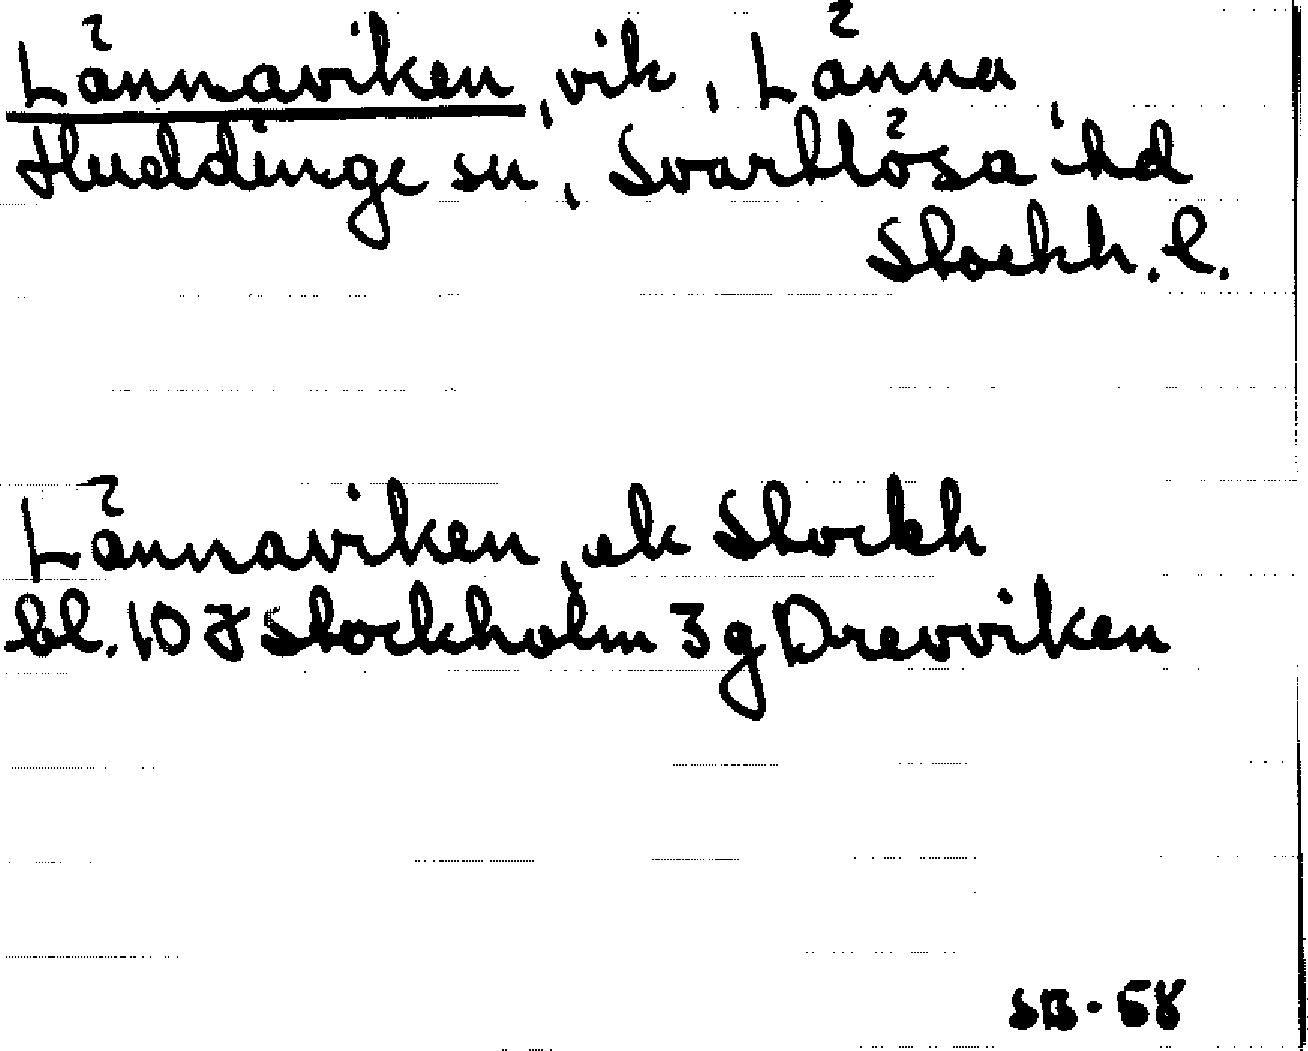 Lännaviken, vik, Länna,
Huddinge sn, Svartlösa hd
Stockh. l.
Lännaviken, ek Stockh
bl. 10 J Stockholm 3 g Drevviken
SB - 58